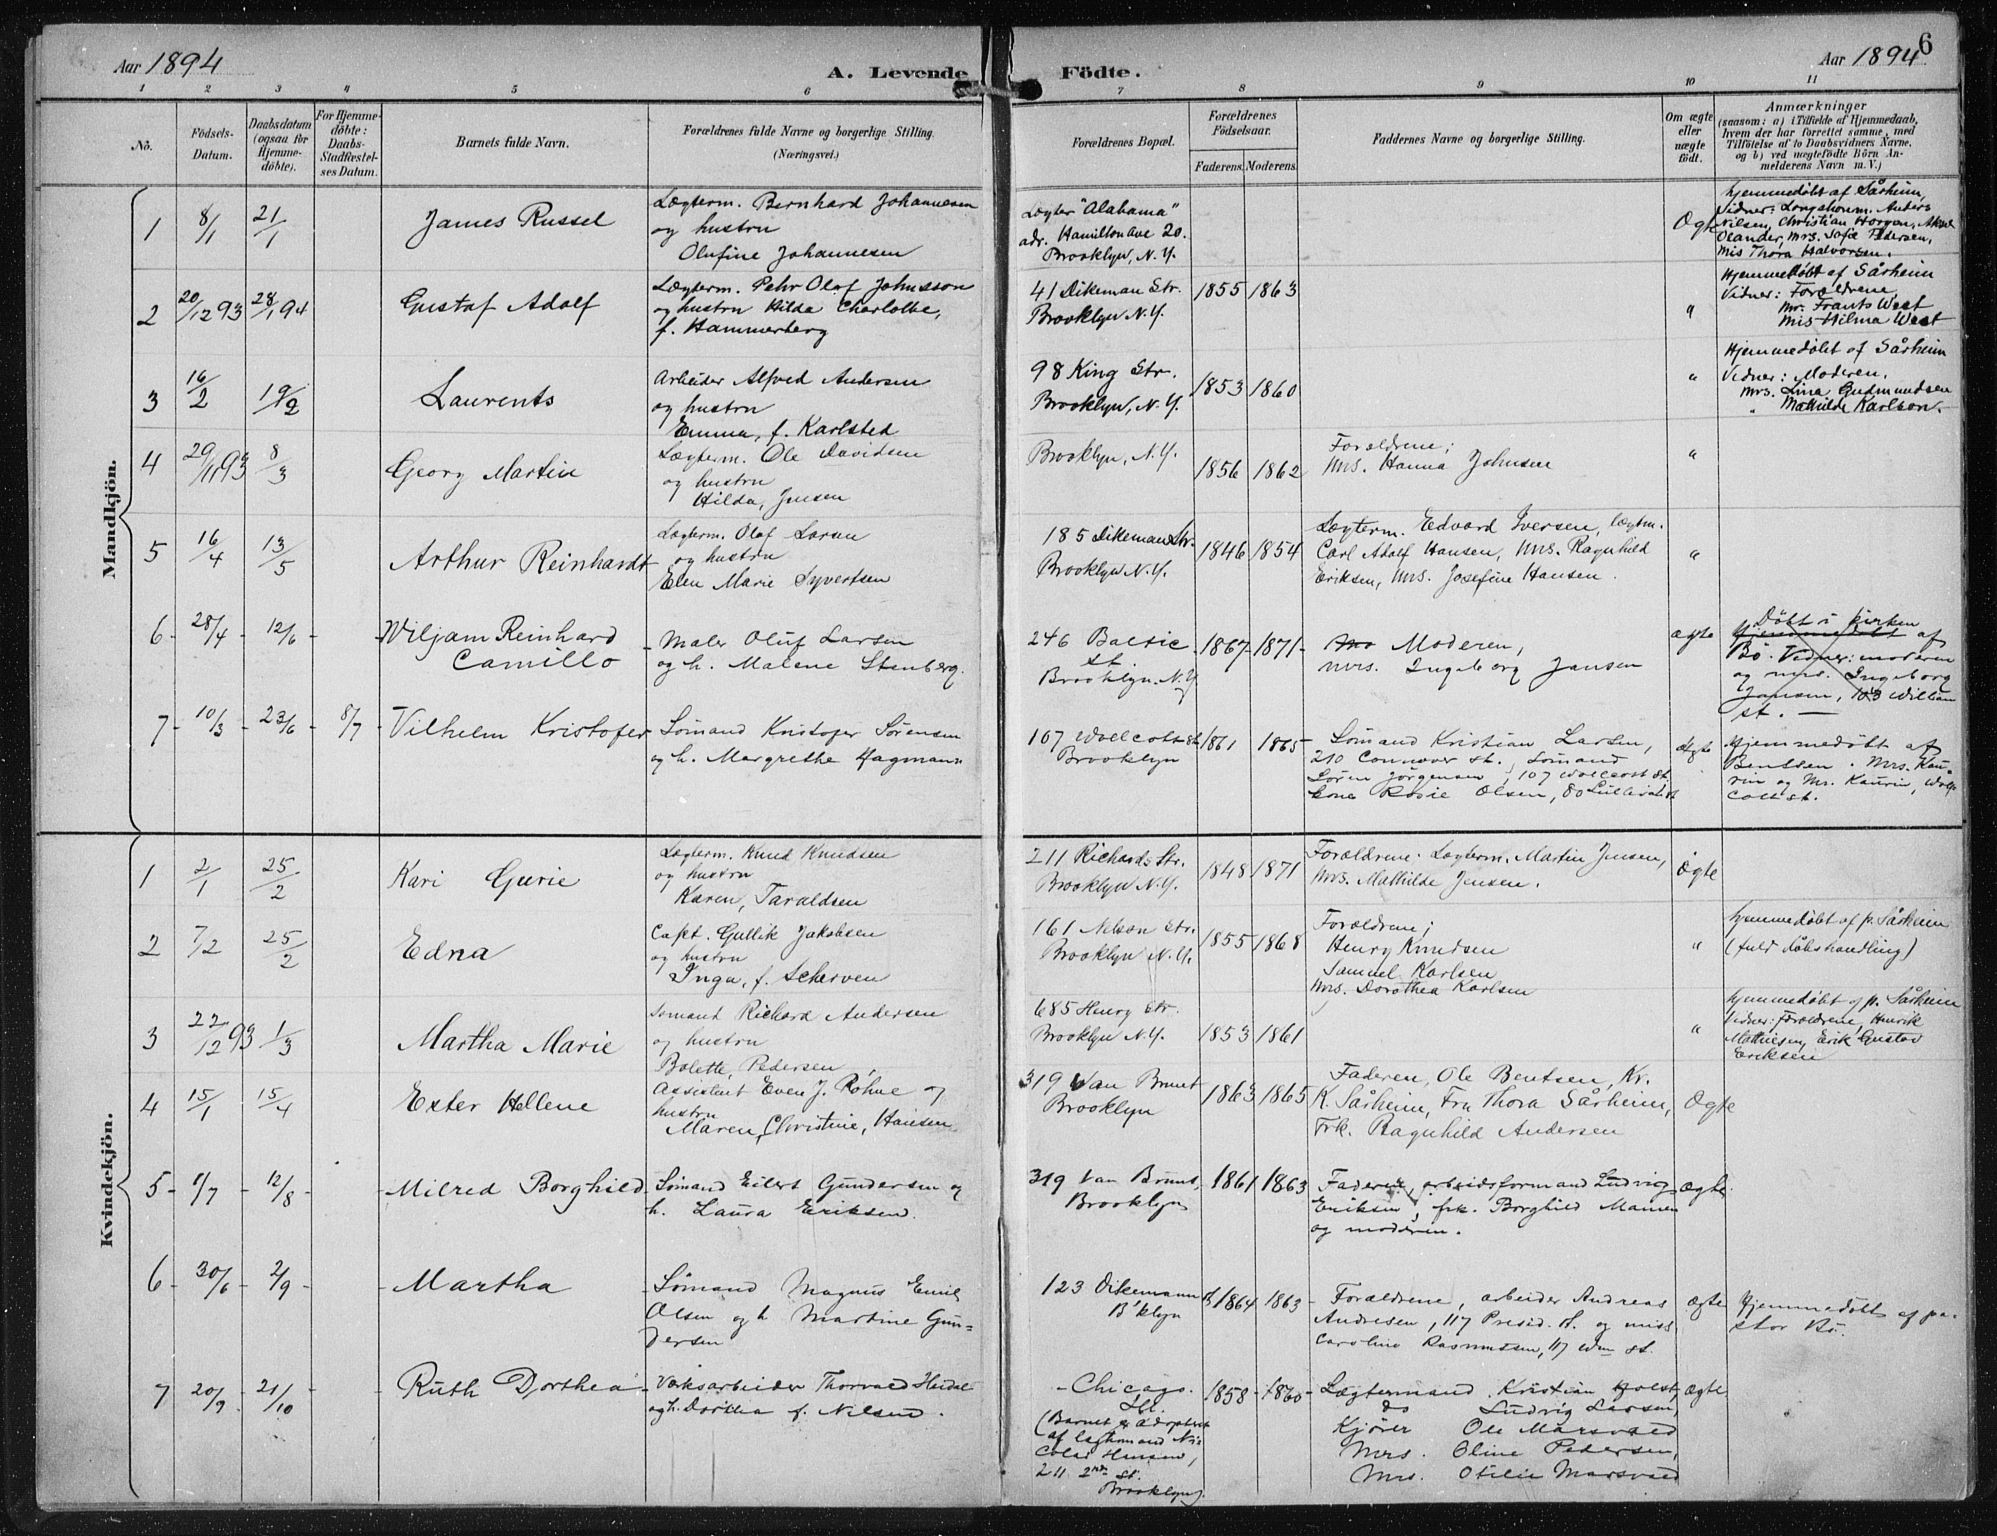 Aar 1894
A. Levende Födte.
6
Aar 1894
1 2 3 4 5 6 7 8 9 10 11
No.
Födsels-
Datum.
Daabsdatum
(ogsaa for
Hjemme-
döbte).
For Hjemme-
döbte:
Daabs-
Stadfæstel-
ses Datum.
Barnets fulde Navn.
Forældrenes fulde Navne og borgerlige Stilling.
(Næringsvei.)
Forældrenes Bopæl.
Forældrenes
Födselsaar.
Faderens. Moderens.
Faddernes Navne og borgerlige Stilling.
Om ægte
eller
uægte
födt.
Anmærkninger
(saasom: a) i Tilfælde af Hjemmedaab,
hvem der har forrettet samme, med
Tilföielse af to Daabsvidners Navne,
og b) ved uægtefödte Börn An-
melderens Navn m. V.)
Mandkjön.
1
8/1
21/1
James Russel
Lægterm. Bernhard Johannesen
og hustru
Olufine Johannesen
Lægter "Alabama"
adr. Hamilton Ave 20.
Brooklyn, N.Y.
Ægte
Hjemmedöbt af Sårheim,
Vidner: Longshorem. Anders
Nilsen, Christian Horgen,
Olander, Mrs. Sofie Pedersen,
Mis Thora Halvorsen.
2
20/12 93
28/1 94
Gustaf Adolf
Lægterm. Pehr Olof Johnsson
og hustru Hilda Charlotte,
f. Hammerberg
41 Dikeman Str.
Brooklyn N.Y.
1855
1863
"
Hjemmedöbt af Sårheim
Vidner: Forældrene,
Mr. Frants West
Mis Hilma West
3
16/2
19/2
Laurents
Arbeider Alfred Andersen
og hustru
Emma, f. Karlsted
98 King Str.
Brooklyn, N.Y.
1853
1860
"
Hjemmedöbt af Sårheim
Vidner: Moderen,
Mrs. Lina Gudmundsen
" Mathilde Karlson.
4
29/11 93
8/3
Georg Martin
Lægterm. Ole Davidsen
og hustru
Hilda, Jensen
Brooklyn, N.Y.
1856
1862
Forældrene;
Mrs. Hanna Johnsen
"
5
16/4
13/5
Arthur Reinhardt
Lægterm. Olaf Larsen
og hustru
Elen Marie Syvertsen
185 Dikeman Str.
Brooklyn N.Y.
1846
1854
Lægterm. Edvard Iversen, lægtm.
Carl Adolf Hansen, Mrs. Ragnhild
Eriksen, Mrs. Josefine Hansen.
"
6
28/4
12/6
Wiljam Reinhard
Camillo
Maler Oluf Larsen
og h. Malene Stenberg.
246 Baltic
st
Brooklyn. N.Y.
1867
1871
Moderen,
Mrs. Ingeborg Jansen
ægte
Döbt i kirken
Hjemmedöbt af
Bö. Vidner: moderen
og mrs. Ingeborg
Jansen, 103 William
st.
7
10/3
23/6
8/7
Vilhelm Kristofer
Sømand Kristofer Sørensen
og h. Margrethe Hagmann
107 Wolcott st.
Brooklyn
1861
1865
Sømand Kristian Larsen,
210 Connover st. Sømand
Søren Jørgensen, 107 Wolcott st.
Rosie Olsen, 80 Sullivan st
Ægte
Hjemmedöbt af
Bentsen. Mrs. Kau-
rin og Mr. Kaurin, Wol-
cott st.
Kvindekjön.
1
2/1
25/2
Kari Gurie
Lægterm. Knud Knudsen
og hustru
Karen, Taraldsen
211 Richards Str.
Brooklyn N.Y.
1848
1871
Forældrene. Lægterm. Martin Jensen,
Mrs. Mathilde Jensen.
Ægte
2
7/2
25/2
Edna
Capt. Gullik Jakobsen
og hustru
Inga, f. Scherven
161 Nelson Str.
Brooklyn N.Y.
1855
1868
Forældrene;
Henry Knudsen
Samuel Karlsen
Mrs. Dorothea Karlsen
"
hjemmedöbt af p. Sårheim
(fuld dåbshandling)
3
22/12 93
1/3
Martha Marie
Sømand Richard Andersen
og hustru
Bolette, Pedersen
685 Henry Str.
Brooklyn N.Y.
1853
1861
"
hjemmedöbt af p. Sårheim
Vidner: forældrene, Henrik
Mathiesen, Erik Gustav
Eriksen
4
15/1
15/4
Ester Hellene
Assistent Even J. Röhne og
hustru
Maren Christine, Hansen
319 Van Brunt
Brooklyn
1863
1865
Faderen, Ole Bentsen, Kr.
K. Sårheim, Fru Thora Sårheim,
Frk. Ragnhild Andersen
Ægte
5
1/7
12/8
Milred Borghild
Sømand Eilert Gundersen og
h. Laura Eriksen.
319 Van Brunt,
Brooklyn
1861
1863
Faderen, arbeidsformand Ludvig
Eriksen, frk. Borghild
og moderen.
ægte
6
30/6
2/9
Martha
Sømand Magnus Emil
Olsen og h Martine Gun-
dersen
123 Dikemann
B'klyn
1864
1863
Forældrene, arbeider Andreas
Andresen, 117 Presid. st. og miss
Caroline Rasmussen, 117 Wm st.
ægte
Hjemmedöbt af pa-
stor Bö.
7
20/9
21/10
Ruth Dorthea
Thorvald
og h. Dorthea f. Nilsen.
Chicago.
Ill.
(Barnet er adopteret
af lægtemand Ni-
colai Hansen,
211 2nd St.
Brooklyn).
1858
1860
Lægtemand Kristian Holst,
do Ludvig Larsen,
Kjører Ole Marsvold
Mrs. Oline Pedersen,
Mrs. Otilie Marsvold
ægte